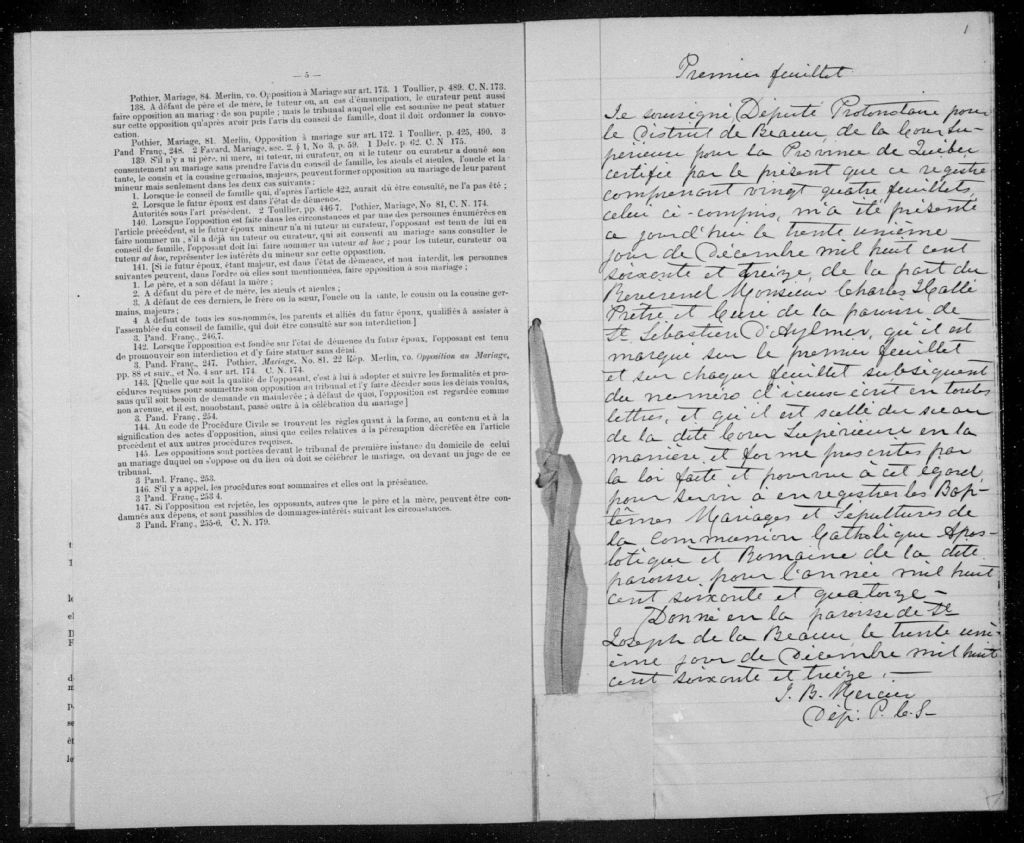 — 5 —
Pothier, Mariage, 84. Merlin, vo. Opposition à Mariage sur art. 173. 1 Toullier, p. 489. C. N. 173.
138. A défaut de père et de mère, le tuteur ou, au cas d'émancipation, le curateur peut aussi
faire opposition au mariage de son pupile; mais le tribunal auquel elle est soumise ne peut statuer
sur cette opposition qu'après avoir pris l'avis du conseil de famille, dont il doit ordonner la convo-
cation.
Pothier, Mariage, 81. Merlin, Opposition à mariage sur art. 172. 1 Toullier, p. 425, 490. 3
Pand Franç., 248. 2 Favard, Mariage, sec. 2. § 1, No 3, p. 59. 1 Delv. p. 62. C. N 175.
139. S'il n'y a ni père, ni mère, ni tuteur, ni curateur, ou si le tuteur ou curateur a donné son
consentement au mariage sans prendre l'avis du conseil de famille, les aieuls et aieules, l'oncle et la
tante, le cousin et la cousine germains, majeurs, peuvent former opposition au mariage de leur parent
mineur mais seulement dans les deux cas suivants:
1. Lorsque le conseil de famille qui, d'après l'article 422, aurait dû être consulté, ne l'a pas été;
2. Lorsque le futur époux est dans l'état de démence.
Autorités sous l'art précédent. 2 Toullier, pp. 446-7. Pothier, Mariage, No 81, C. N. 174.
140. Lorsque l'opposition est faite dans les circonstances et par une des personnes énumérées en
l'article précédent, si le futur époux mineur n'a ni tuteur ni curateur, l'opposant est tenu de lui en
faire nommer un; s'il a déjà un tuteur ou curateur, qui ait consenti au mariage sans consulter le
conseil de famille, l'opposant doit lui faire nommer un tuteur ad hoc; pour les tuteur, curateur ou
tuteur ad hoc, représenter les intérêts du mineur sur cette opposition.
141. [Si le futur époux, étant majeur, est dans l'état de démence, et non interdit, les personnes
suivantes peuvent, dans l'ordre où elles sont mentionnées, faire opposition à son mariage;
1. Le père, et a son défaut la mère;
2. A défaut du père et de mère, les aieuls et aieules;
3. A défaut de ces derniers, le frère ou la sœur, l'oncle ou la tante, le cousin ou la cousine ger-
mains, majeurs;
4 A défaut de tous les sus-nommés, les parents et alliés du futur époux, qualifiés à assister à
l'assemblée du conseil de famille, qui doit être consulté sur son interdiction.]
3. Pand. Franç., 246,7.
142. Lorsque l'opposition est fondée sur l'état de démence du futur époux, l'opposant est tenu
de promouvoir son interdiction et d'y faire statuer sans délai.
3. Pand. Franç., 247. Pothier, Mariage, No. 81. 22 Rép. Merlin, vo. Opposition au Mariage,
pp. 88 et suiv., et No. 4 sur art. 174. C. N. 174.
143. [Quelle que soit la qualité de l'opposant, c'est à lui à adopter et suivre les formalités et pro-
cédures requises pour soumettre son opposition au tribunal et l'y faire décider sous les délais voulus,
sans qu'il soit besoin de demande en mainlevée; à défaut de quoi, l'opposition est regardée comme
non avenue, et il est, nonobstant, passé outre à la célébration du mariage]
3. Pand. Franç., 254.
144. Au code de Procédure Civile se trouvent les règles quant à la forme, au contenu et à la
signification des actes d'opposition, ainsi que celles relatives à la péremption décrétée en l'article
précédent et aux autres procédures requises.
145. Les oppositions sont portées devant le tribunal de première instance du domicile de celui
au mariage duquel on s'oppose ou du lieu où doit se célébrer le mariage, ou devant un juge de ce
tribunal.
3 Pand. Franç., 253.
146. S'il y a appel, les procédures sont sommaires et elles ont la préséance.
3 Pand. Franç., 253 4.
147. Si l'opposition est rejetée, les opposants, autres que le père et la mère, peuvent être con-
damnés aux dépens, et sont passibles de dommages-intérêts suivant les circonstances.
3 Pand. Franç., 255-6. C. N. 179.
1
Premier feuillet
Je soussigné, Député Protonotaire pour
le District de Beauce, de la Cour Su-
périeure pour la Province de Québec
certifie par le présent que ce registre
comprenant vingt quatre feuillets,
celui ci-compris, m'a été présenté
ce jourd'hui le trente unième
jour de Décembre mil huit cent
soixante et treize, de la part du
Révérend Monsieur Charles Hallé
Prêtre et Curé de la paroisse de
St. Sébastien D'Aylmer, qu'il est
marqué sur le premier feuillet
et sur chaque feuillet subséquent
du numéro d'iceux écrit en toutes
lettres, et qu'il est scellé du sceau
de la dite Cour Supérieure en la
manière et forme prescrites par
la loi faite et pourvue à cet égard,
pour servir à enregistrer les Bap-
têmes Mariages et Sépultures de
la Communion Catholique Apos-
tolique et Romaine de la dite
paroisse, pour l'année mil huit
cent soixante et quatorze —
Donné en la paroisse de St
Joseph de la Beauce le trente uni-
ème jour de Décembre mil huit
cent soixante et treize. —
J. B. Mercier
Dép: P. C. S—